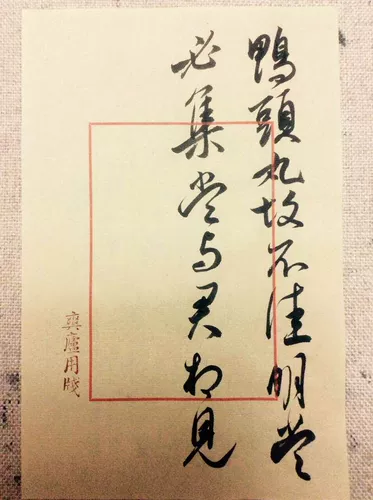 鴨頭丸故不佳明當
必集當与君相見
廬用牋